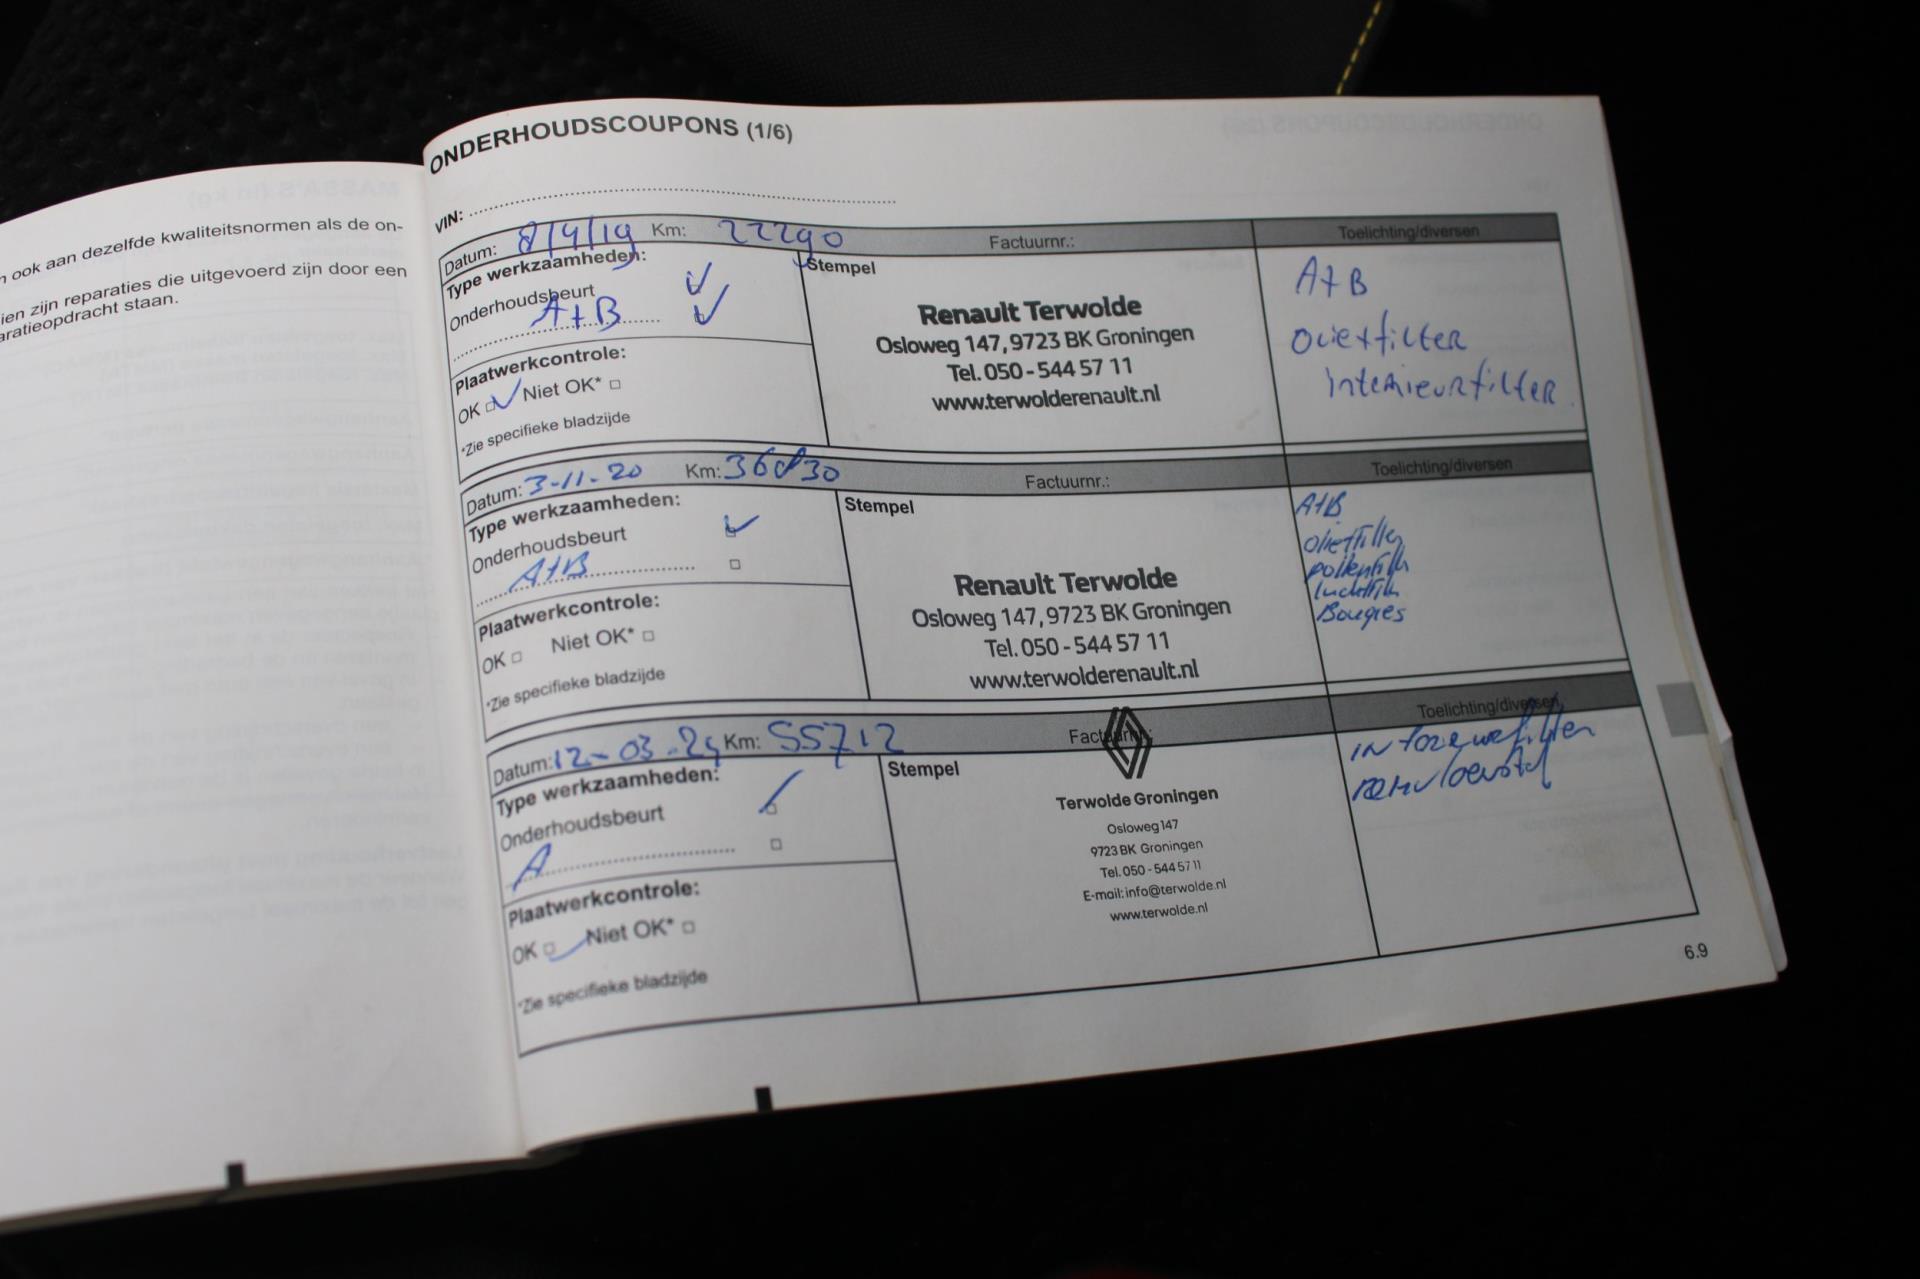 n ook aan dezelfde kwaliteitsnormen als de on-
ien zijn reparaties die uitgevoerd zijn door een
aratieopdracht staan.
ONDERHOUDSCOUPONS (1/6)
VIN:
Datum: 8/4/19 Km: 22290 Factuurnr.: Toelichting/diversen
Type werkzaamheden:
Onderhoudsbeurt
A+B
Plaatwerkcontrole:
OK Niet OK*
*Zie specifieke bladzijde
Stempel
Renault Terwolde
Osloweg 147, 9723 BK Groningen
Tel. 050 - 544 57 11
www.terwolderenault.nl
A+B
Olie+filter
Interieurfilter
Datum: 3-11-20 Km: Factuurnr.: Toelichting/diversen
Type werkzaamheden:
Onderhoudsbeurt
A+B
Plaatwerkcontrole:
OK Niet OK*
*Zie specifieke bladzijde
Stempel
Renault Terwolde
Osloweg 147, 9723 BK Groningen
Tel. 050 - 544 57 11
www.terwolderenault.nl
A+B
olie+filter
pollenfilt
luchtfilt
Bougies
Datum: Km: 55712 Factuurnr.: Toelichting/diversen
Type werkzaamheden:
Onderhoudsbeurt
A
Plaatwerkcontrole:
OK Niet OK*
*Zie specifieke bladzijde
Stempel
Terwolde Groningen
Osloweg 147
9723 BK Groningen
Tel. 050 - 544 57 11
E-mail: info@terwolde.nl
www.terwolde.nl
remvloeistof
6.9